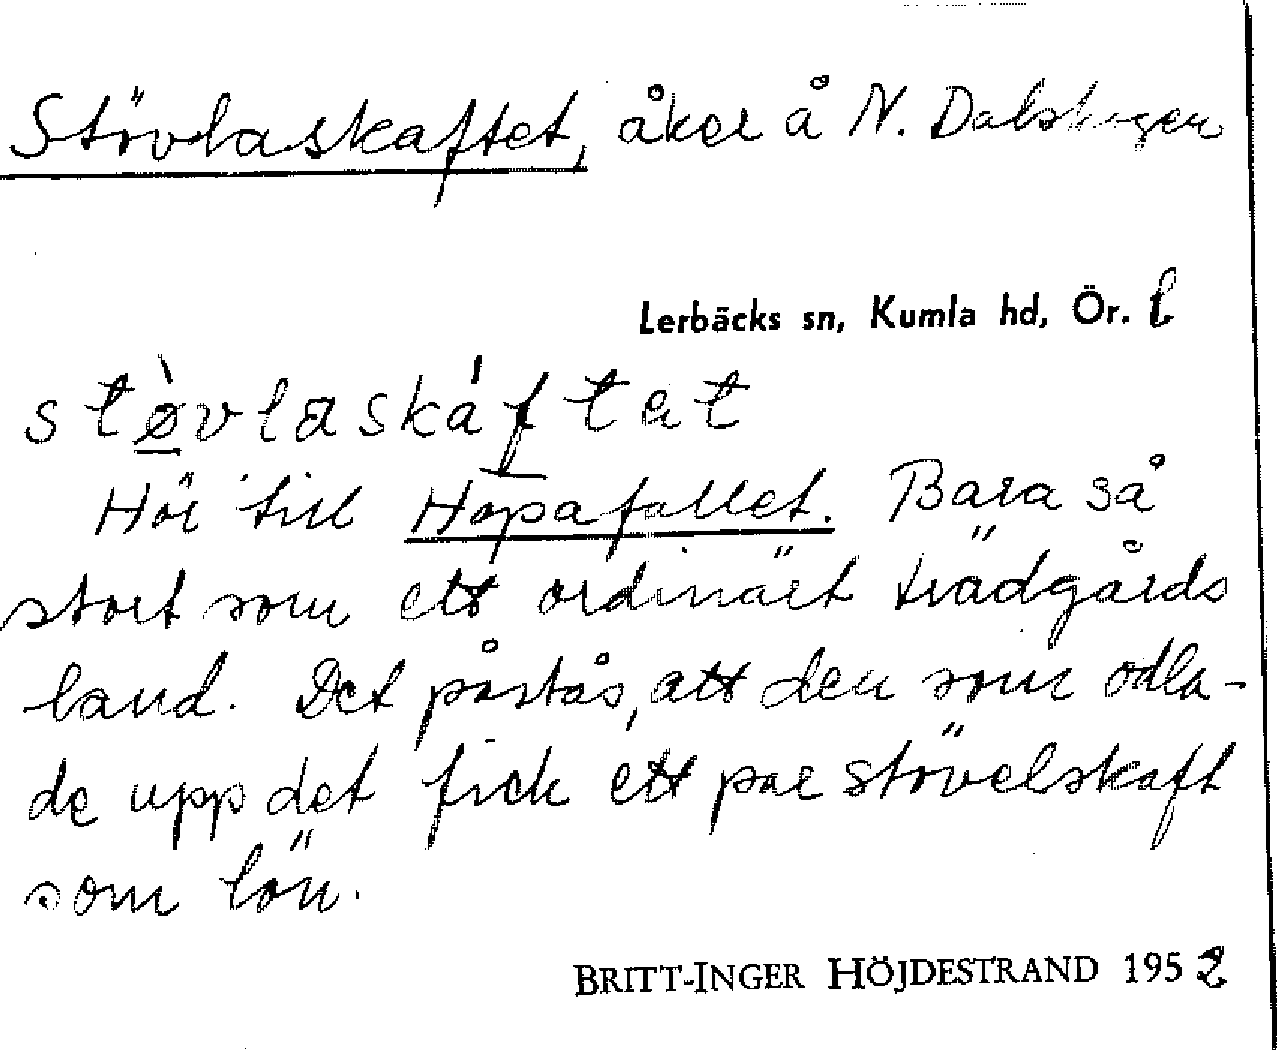 Stövlaskaftet, åker å N. Dalskogen
Lerbäcks sn, Kumla hd, Ör. l
stø̀vlaskáftet
Hör till Hopafallet. Bara så
stort som ett ordinärt trädgårds
land. Det påstås, att den som odla-
de upp det fick ett par stövelskaft
som lön.
BRITT-INGER HÖJDESTRAND 1952